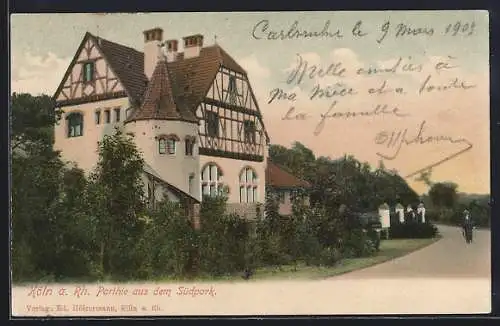 Carlsruhe le 9 Mars 1903
Mille amitiés à
ma Mère et a toute
la famille
Köln a. Rh. Parthie aus dem Südpark.
Verlag: Ed. Hölzermann, Köln a. Rh.